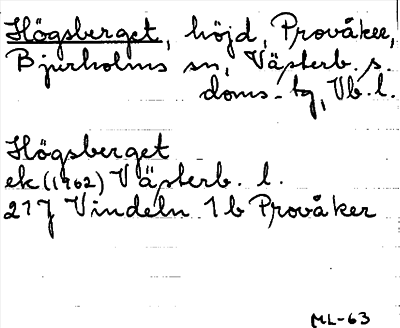 Högsberget, höjd, Provåker,
Bjurholms sn, Västerb. s.
doms. tg, Vb. l.
Högsberget
ek (1962) Västerb. l.
21J Vindeln 1b Provåker
ML-63